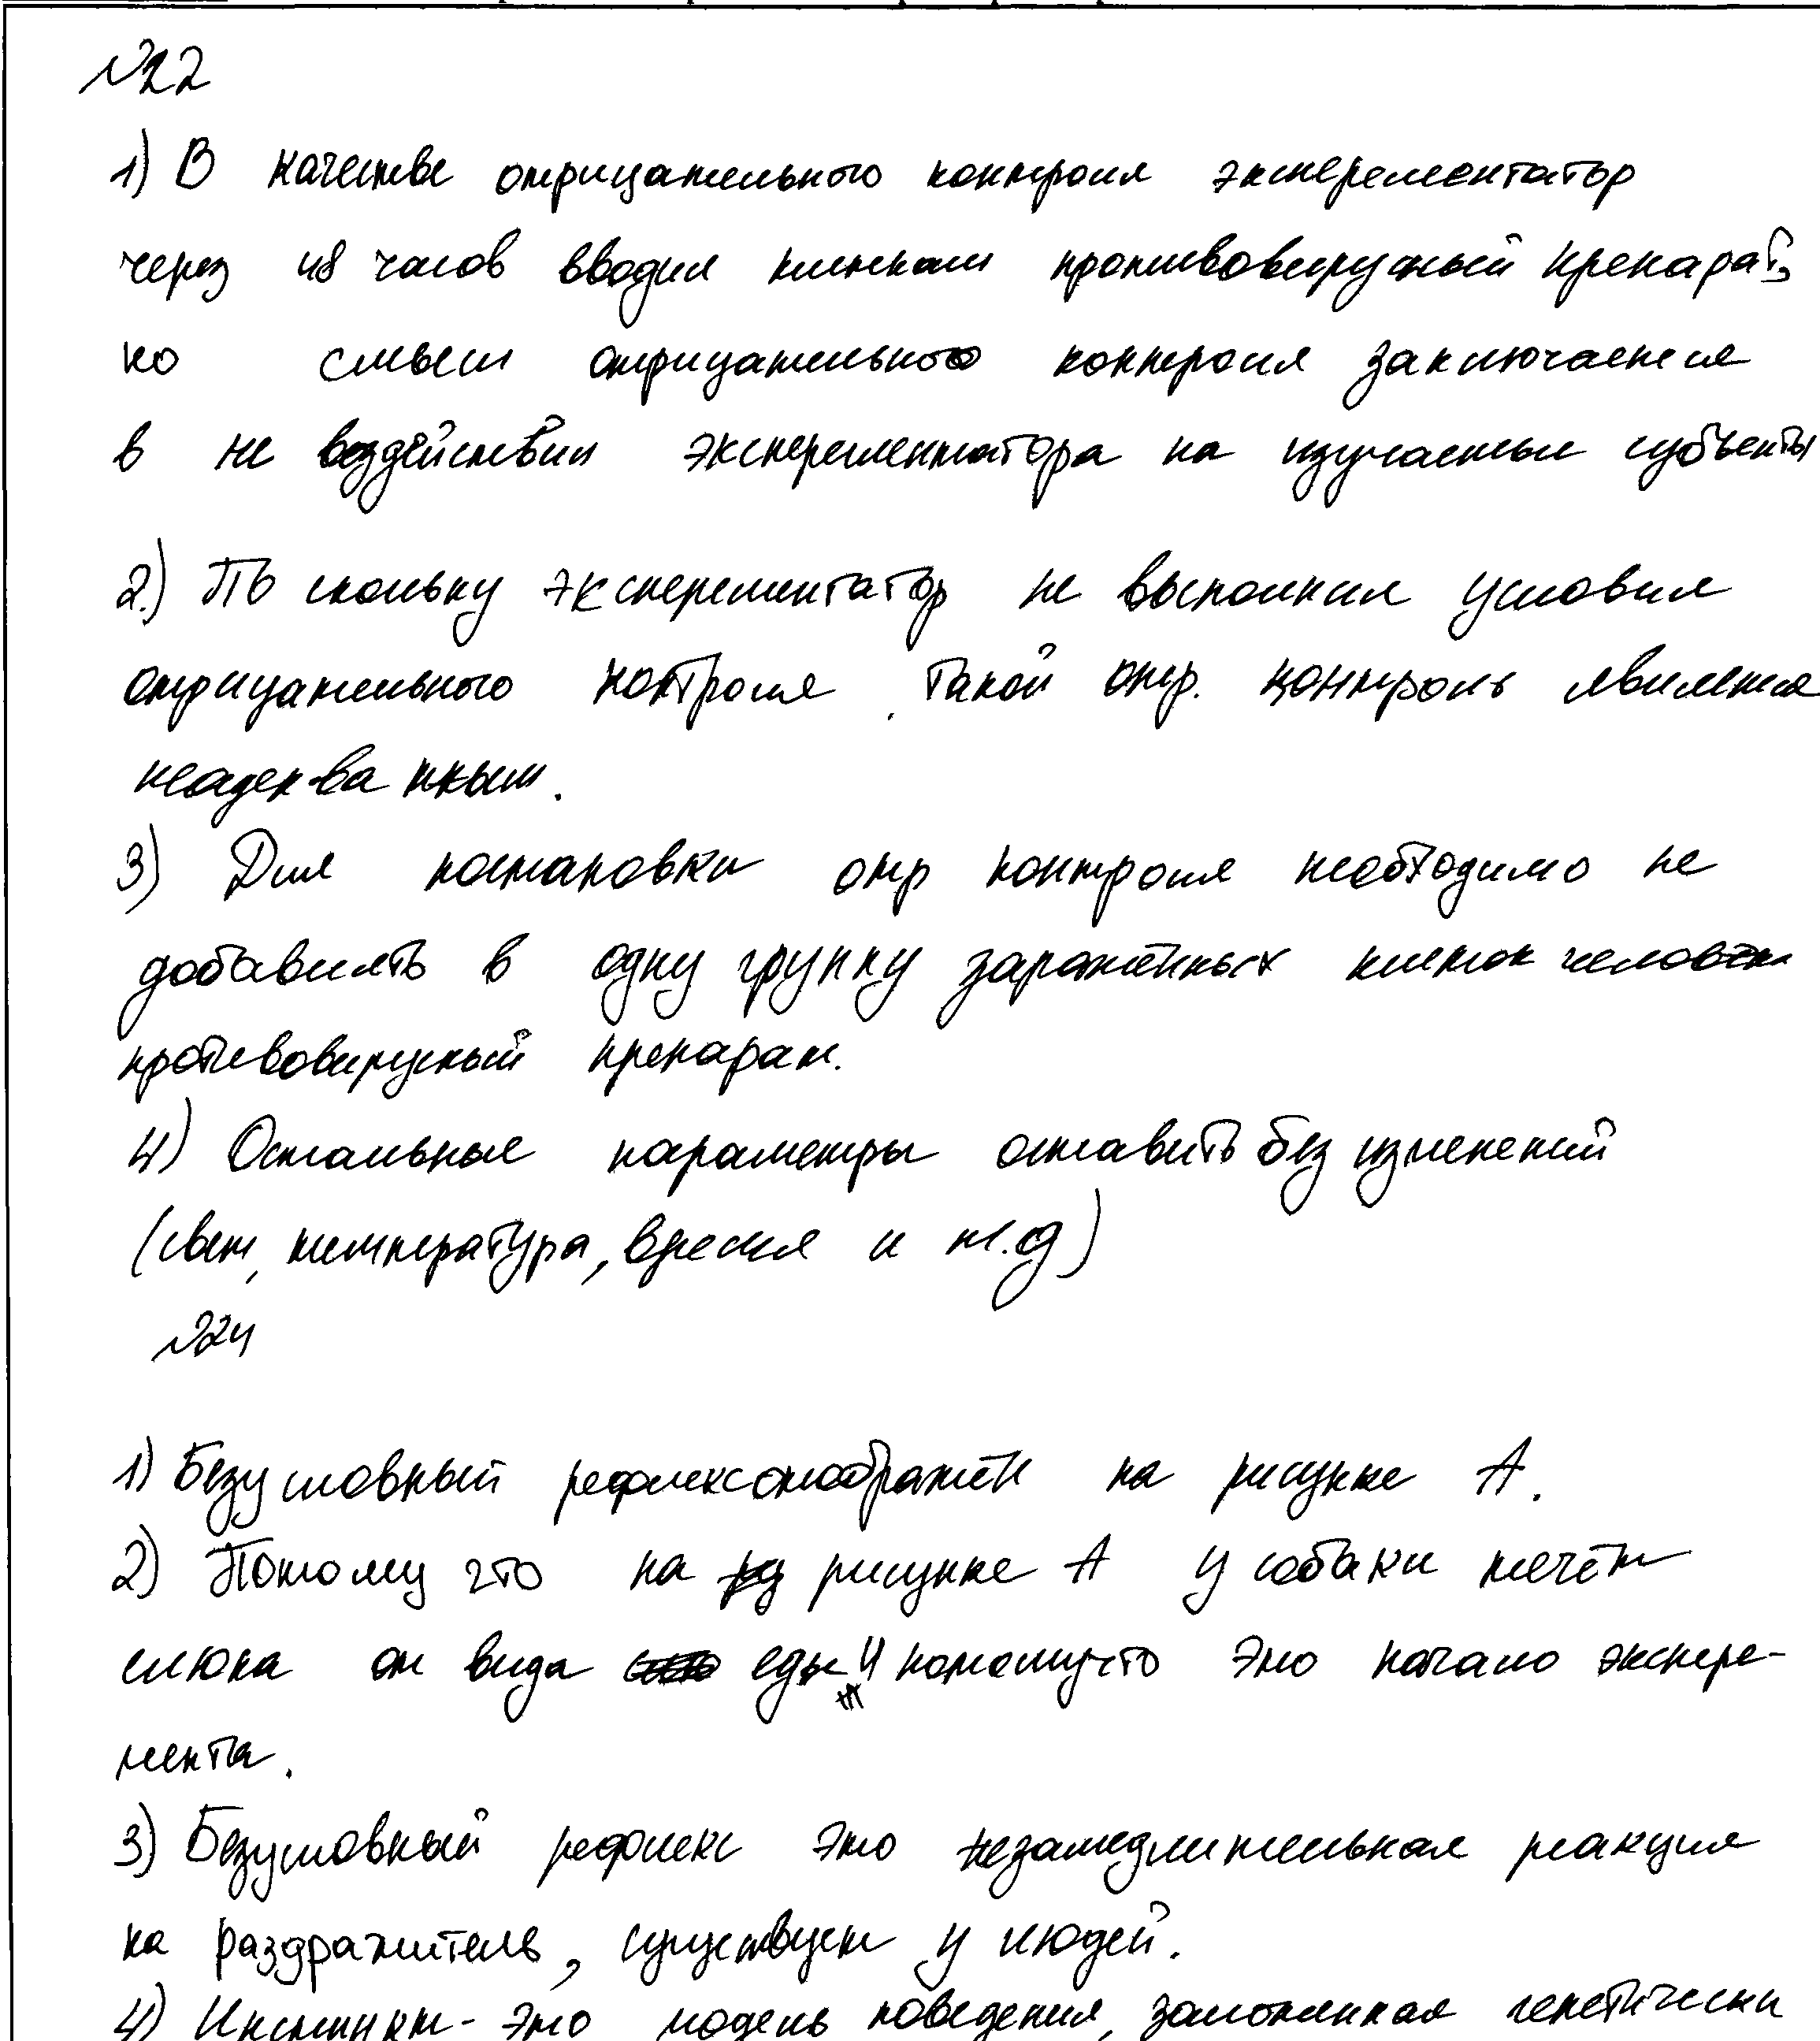 №22
1) В качестве отрицательного контроля эксперементатор
через 48 часов вводил клеткам противовирусный препарат,
но смысл отрицательного контроля заключается
в не воздействии эксперементатора на изучаемые субъекты
2.) По скольку эксперементатор не выполнил условия
отрицательного контроля, такой отр. контроль является
неадекватным.
3) Для постановки отр контроля необходимо не
добавлять в одну группу заражённых клеток человека
противовирусный препарат.
4) Остальные параметры оставить без изменений
(свет, температура, время и т.д)
№24
1) Безусловный рефлекс отображён на рисунке А.
2) Потому что на рисунке А у собаки течёт
слюна от вида еды и потомучто это начало экспере-
мента.
3) Безусловный рефлекс это незамедлительная реакция
на раздражитель, существует у людей.
4) Инстинкт - это модель поведения, заложенная генетически